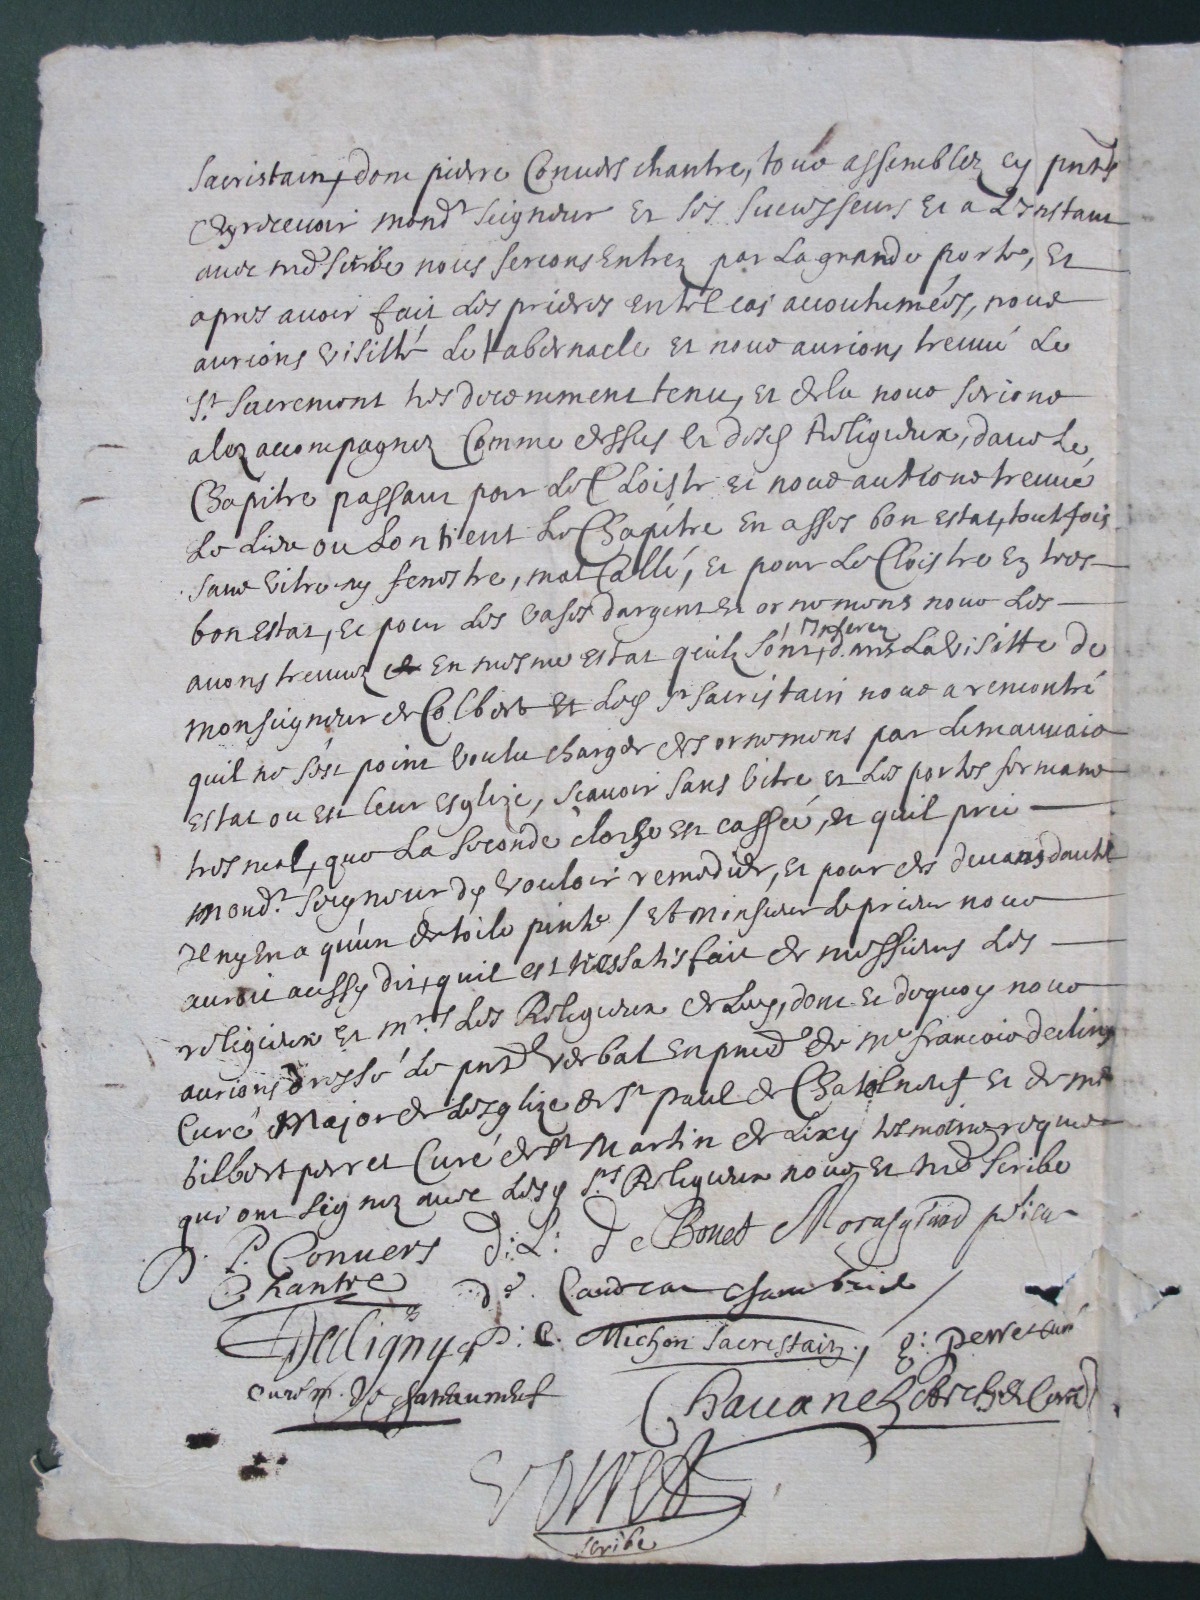 Sacristain, dom pierre Conuers chantre, tous assemblez cy pnts
mondt Seigneur et ses successeurs et a L'instant
auec md Scribe nous serions Entrez par La grande porte, et
apres auoir fait Les prieres en tel cas accoutumées, nous
aurions visitté Le tabernacle et nous aurions treuué Le
St Sacrement tres decemment tenu, et de la nous serions
alez accompagnez Comme dessus et desd Religieux, dans Le
Chapitre passant par Le Cloistr et nous aurions treuué
Le Lieu ou Lon tient Le Chapitre En asses bon estat, toutfois
sans vitre ny fenestre, mal Callé, et pour Le Cloistre en tres
bon estat, et pour Les vases d'argent et ornemens nous Les
auons treuuez En mesme estat quils sont, Inserez dans La visitte de
Monseigneur de Colbert et Led Sr Sacristain nous a remontré
quil ne s'est point voulu charger des ornemens par Le mauuais
estat ou est leur esglize, scauoir sans vitre et Les portes fermans
tres mal, que La seconde cloche est cassée, et quil prie
mondt Seigneur dy vouloir remedier, et pour des deuans dautel
Jl ny En a qu'un de toile pinte / et Monsieur Le prieur nous
auroit aussy dit, quil est tres satisfait de messieurs Les
religieux et mrs Les Religieux de Luy, dont et dequoy nous
aurions dressé Le pnt verbal En pnce de me francois deligny
Curé Major de Lesglize de St Paul de Chatelneuf et de me
Gilbert perret Curé de St Martin de Lixy tesmoins requis
qui ont signez auec Lesd Srs Religieux nous et md Scribe
D. P. Conuers D: L: De Bonet prieur
Chantre De. Chambrier
Delligny D: C. Michon Sacristain, g: Perret curé
curé m. de chateauneuf Chauanes
scribe